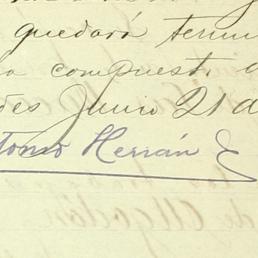 quedará termi
a compuest
des Junio 21 d
tonio Herrán E